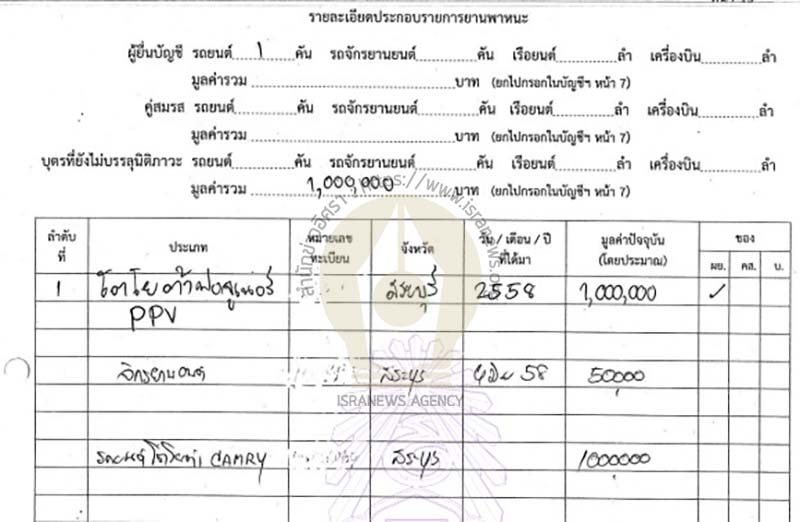 รายละเอียดประกอบรายการยานพาหนะ
ผู้ยื่นบัญชี รถยนต์ 1 คัน รถจักรยานยนต์ คัน เรือยนต์ ลำ เครื่องบิน ลำ
มูลค่ารวม บาท (ยกไปกรอกในบัญชีฯ หน้า 7)
คู่สมรส รถยนต์ คัน รถจักรยานยนต์ คัน เรือยนต์ ลำ เครื่องบิน ลำ
มูลค่ารวม บาท (ยกไปกรอกในบัญชีฯ หน้า 7)
บุตรที่ยังไม่บรรลุนิติภาวะ รถยนต์ คัน รถจักรยานยนต์ คัน เรือยนต์ ลำ เครื่องบิน ลำ
มูลค่ารวม 1,000,000 บาท (ยกไปกรอกในบัญชีฯ หน้า 7)
สำนักข่าวอิศรา https://www.isranews.org
ลำดับที่ ประเภท หมายเลขทะเบียน จังหวัด วัน / เดือน / ปี ที่ได้มา มูลค่าปัจจุบัน (โดยประมาณ) ของ
ผย. คส. บ.
1 โตโยต้าฟอจูนเนอร์ สระบุรี 2558 1,000,000 ✓
PPV
จักรยานยนต์ สระบุรี 58 50,000
ISRANEWS AGENCY
รถยนต์โตโยต้า CAMRY สระบุรี 1000000